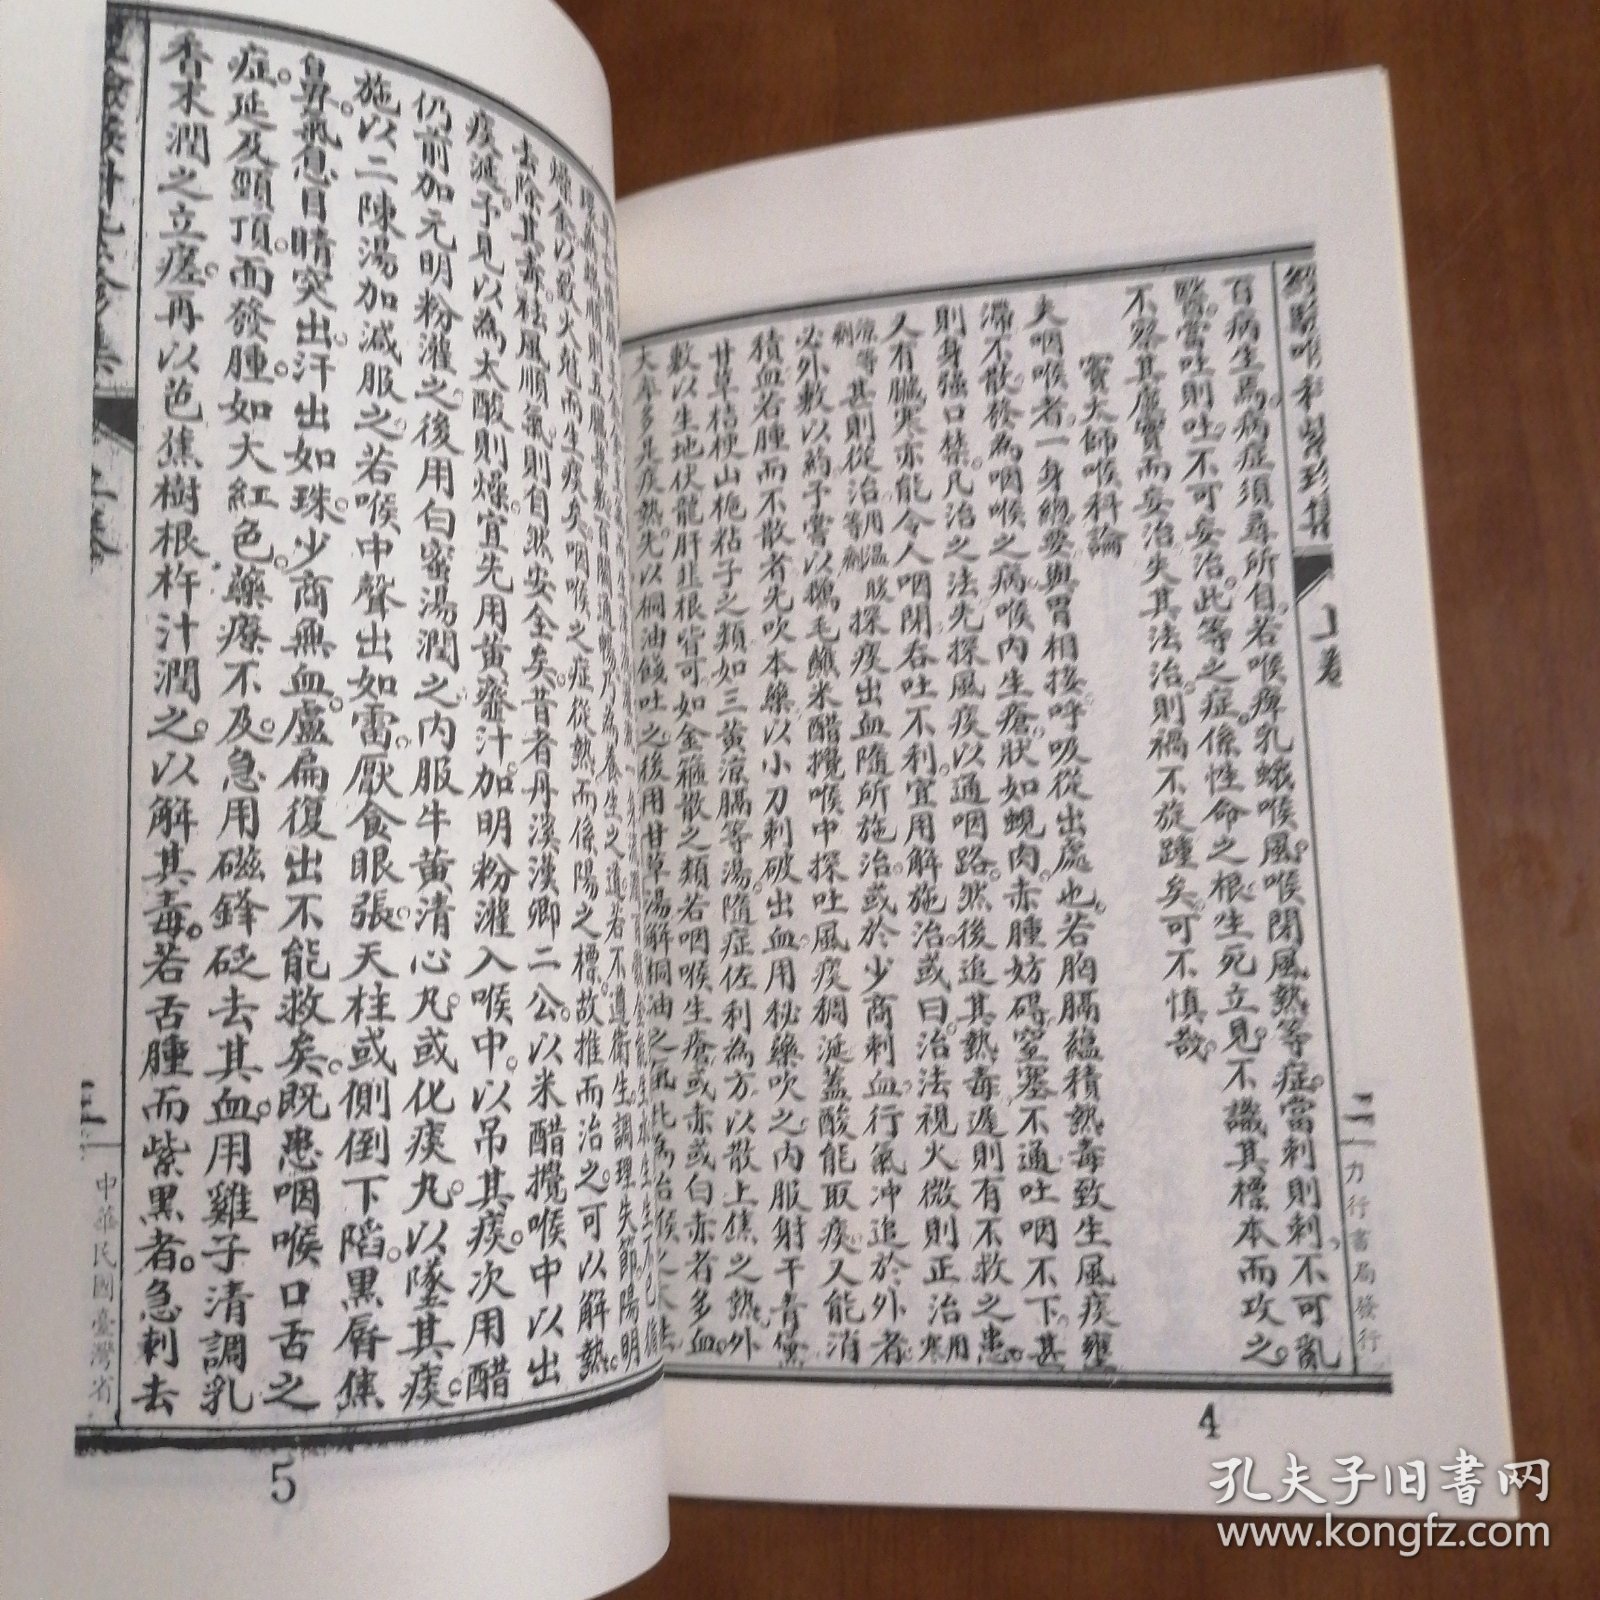 經驗喉科紫珍集
上卷
二
力行書局發行
百病生焉病症須尋所自若喉痺乳蛾喉風喉閉風熱等症當刺則刺不可亂
醫當吐則吐不可妄治此等之症係性命之根生死立見不識其標本而攻之
不察其虛實而妄治失其法治則禍不旋踵矣可不慎哉
竇太師喉科論
夫咽喉者一身總要與胃相接呼吸從出處也若胸膈蘊積熱毒致生風痰壅
滯不散發為咽喉之病喉內生瘡狀如蜆肉赤腫妨碍窒塞不通吐咽不下甚
則身強口禁凡治之法先探風痰以通咽路然後追其熱毒遲則有不救之患
人有臟寒亦能令人咽閉吞吐不利宜用解施治或曰治法視火微則正治用寒
涼等劑甚則從治用溫等劑探痰出血隨所施治或於少商刺血行氣沖追於外者
必外敷以藥予嘗以鵝毛蘸米醋攪喉中探吐風痰稠涎蓋酸能取痰又能消
積血若腫而不散者先吹本藥以小刀刺破出血用秘藥吹之內服射干青黛
甘草桔梗山梔粘子之類如三黃涼膈等湯隨症佐利為方以散上焦之熱外
敷以生地伏龍肝韭根皆可如金箍散之類若咽喉生瘡或赤或白赤者多血
大率多是痰熱先以桐油餞吐之後用甘草湯解桐油之氣此為治喉之大法
4
燥金以散火尅而生痰矣咽喉之症從熱而係陽之標故推而治之可以解熱
去除其毒祛風順氣則自然安全矣昔者丹溪漢卿二公以米醋攪喉中以出
痰涎予見以為太酸則燥宜先用黃虀汁加明粉灌入喉中以吊其痰次用醋
仍前加元明粉灌之後用白蜜湯潤之內服牛黃清心丸或化痰丸以墜其痰
施以二陳湯加減服之若喉中聲出如雷厭食眼張天柱或側倒下陷黑唇焦
鼻氣急目睛突出汗出如珠少商無血盧扁復出不能救矣既患咽喉口舌之
症延及頸頂面發腫如大紅色藥療不及急用磁鋒砭去其血用雞子清調乳
香末潤之立痊再以芭蕉樹根杵汁潤之以解其毒若舌腫而紫黑者急刺去
中華民國臺灣省
5
孔夫子旧书网
www.kongfz.com